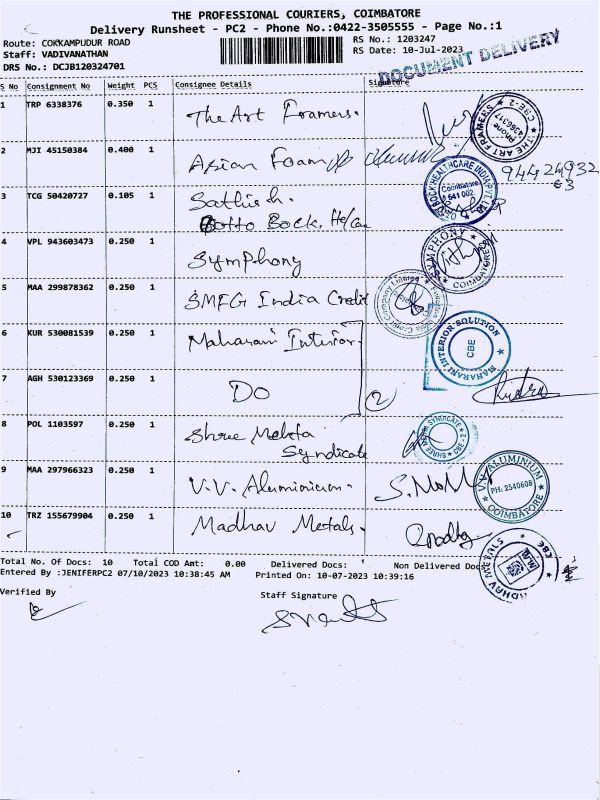 THE PROFESSIONAL COURIERS, COIMBATORE
Delivery Runsheet - PC2 - Phone No.:0422-3505555 - Page No.:1
Route: COKKAMPUDUR ROAD RS No.: 1203247
Staff: VADIVANATHAN RS Date: 10-Jul-2023
DRS No.: DCJB120324701
DOCUMENT DELIVERY
S No Consignment No Weight PCS Consignee Details Signature
1 TRP 6338376 0.350 1 The Art Framers.
THE ART FRAMERS CBE-2 Phone 4386317
2 MJI 45150384 0.400 1 Asian Foam
94424932
63
3 TCG 50420727 0.105 1 Sathish.
Otto Bock. He/Care
BOCK HEALTHCARE INDIA PVT LTD Coimbatore 641 002
4 VPL 943603473 0.250 1 Symphony
SYMPHONY COIMBATORE
5 MAA 299878362 0.250 1 SMFG India Credit
6 KUR 530081539 0.250 1 Maharani Interior
MAHARANI INTERIOR SOLUTION CBE
7 AGH 530123369 0.250 1 Do
2
Rudra
8 POL 1103597 0.250 1 Shree Mehta
Syndicate
SYNDICATE CBE-2
9 MAA 297966323 0.250 1 V.V. Aluminium.
V.V. ALUMINIUM PH: 2540608 COIMBATORE
10 TRZ 155679904 0.250 1 Madhav Metals.
MADHAV METALS CBE
Total No. Of Docs: 10 Total COD Amt: 0.00 Delivered Docs: Non Delivered Doc
Entered By :JENIFERPC2 07/10/2023 10:38:45 AM Printed On: 10-07-2023 10:39:16
Verified By Staff Signature